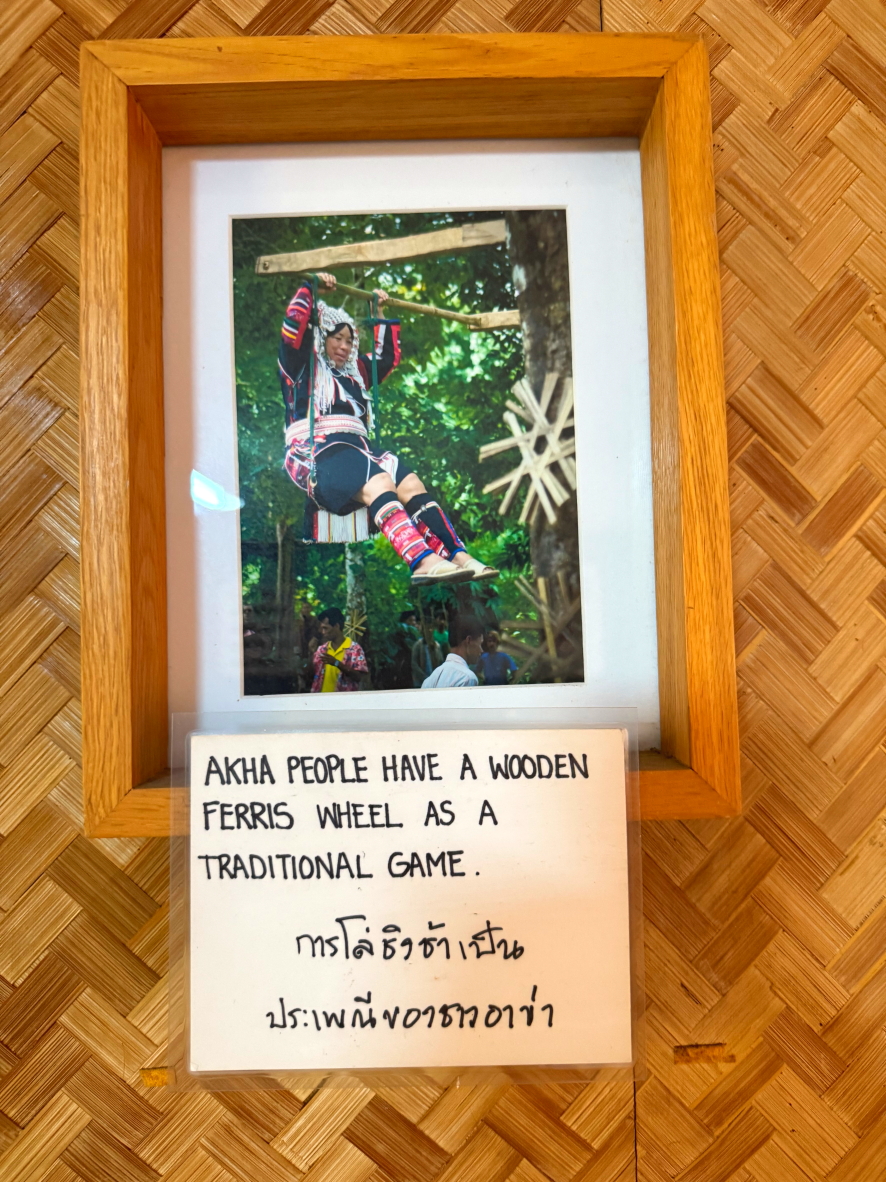 AKHA PEOPLE HAVE A WOODEN
FERRIS WHEEL AS A
TRADITIONAL GAME.
การโล่ชิงช้าเป็น
ประเพณีของชาวอาข่า